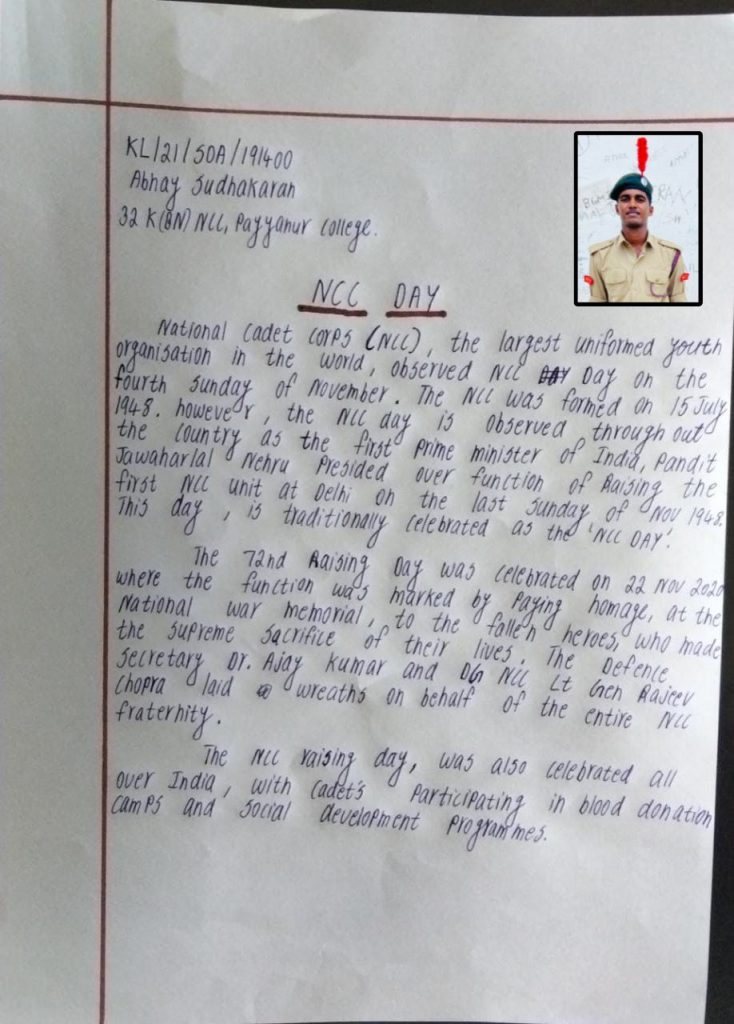 KL/21/SDA/191400
Abhay Sudhakaran
32 K(BN) NCC, Payyanur college.
NCC DAY
National Cadet Corps (NCC), the largest uniformed youth
organisation in the world, observed NCC Day on the
fourth Sunday of November. The NCC was formed on 15 July
1948. however, the NCC day is observed through out
the country as the first Prime minister of India, Pandit
Jawaharlal Nehru Presided over function of Raising the
first NCC unit at Delhi on the last Sunday of Nov 1948.
This day, is traditionally celebrated as the 'NCC DAY'.
The 72nd Raising Day was celebrated on 22 Nov 2020
where the function was marked by Paying homage, at the
National war memorial, to the fallen heroes, who made
the supreme sacrifice of their lives. The Defence
Secretary Dr. Ajay Kumar and DG NCC Lt Gen Rajeev
Chopra laid wreaths on behalf of the entire NCC
fraternity.
The NCC raising day, was also celebrated all
over India, with Cadet's Participating in blood donation
camps and social development Programmes.